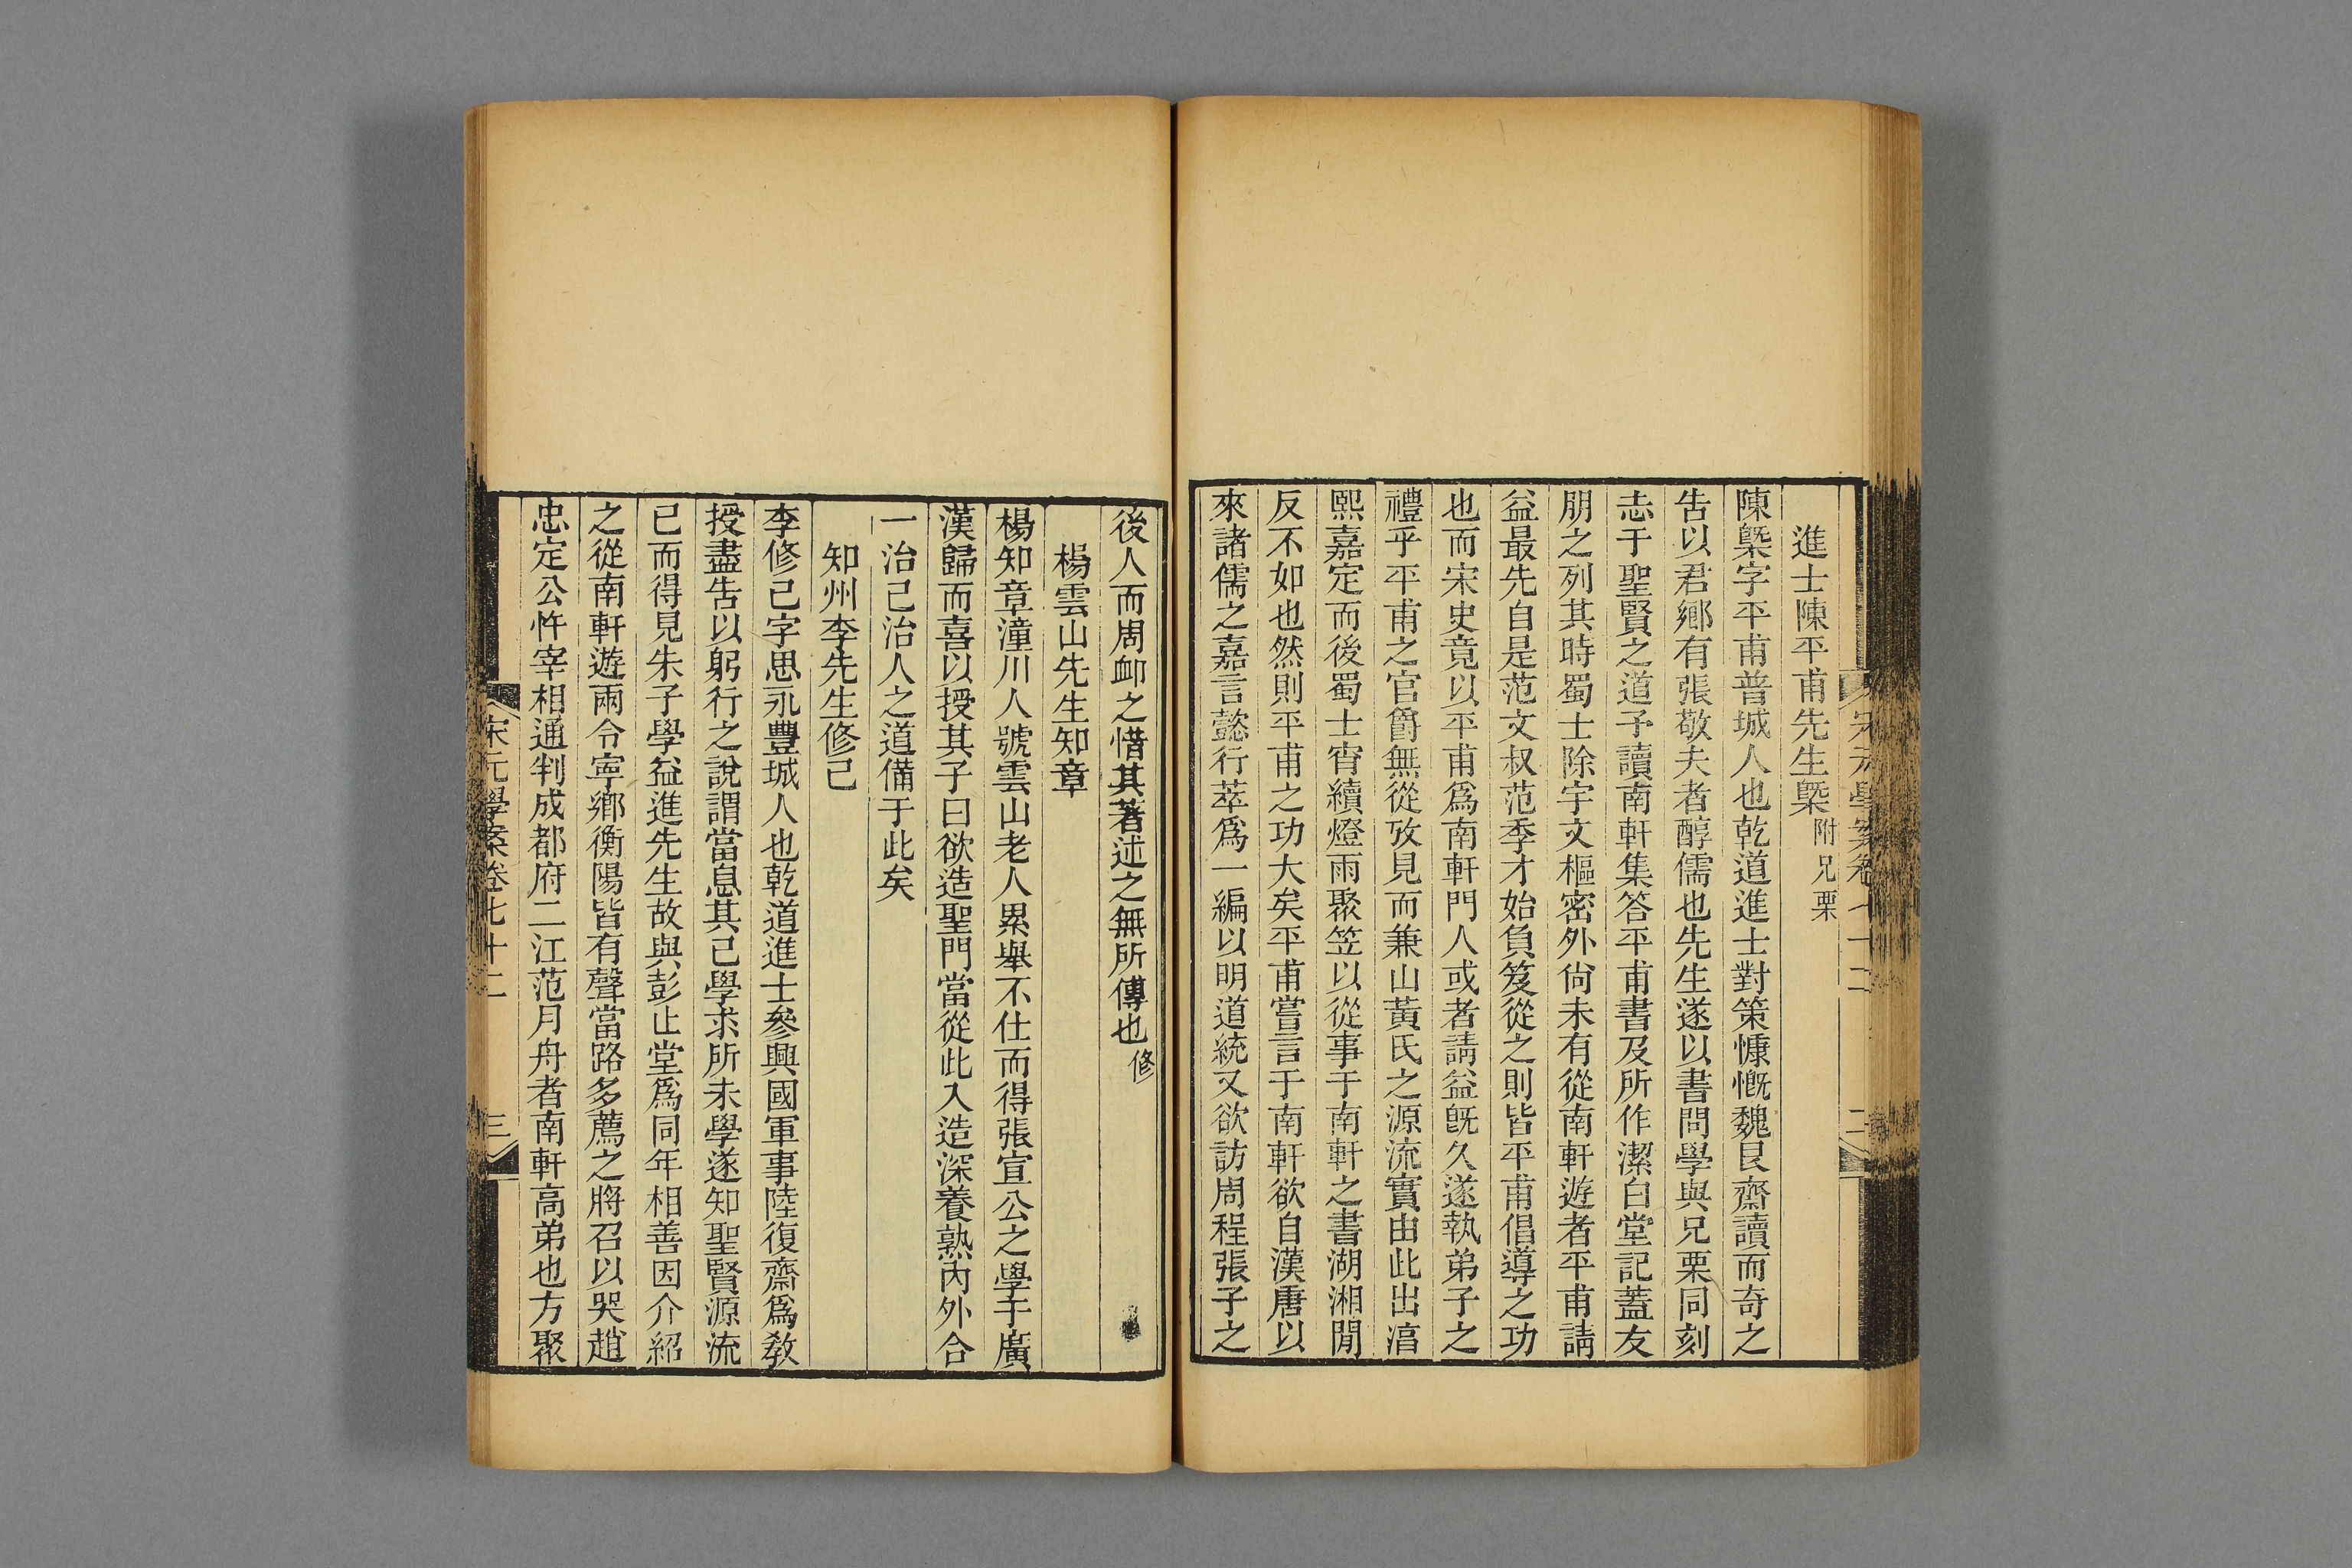 宋元學案卷七十二
二
進士陳平甫先生槩附兄栗
陳槩字平甫普城人也乾道進士對策慷慨魏艮齋讀而奇之
告以君鄉有張敬夫者醇儒也先生遂以書問學與兄栗同刻
志于聖賢之道予讀南軒集答平甫書及所作潔白堂記蓋友
朋之列其時蜀士除宇文樞密外尙未有從南軒遊者平甫請
益最先自是范文叔范季才始負笈從之則皆平甫倡導之功
也而宋史竟以平甫爲南軒門人或者請益旣久遂執弟子之
禮乎平甫之官爵無從攷見而兼山黃氏之源流實由此出淊
熙嘉定而後蜀士宵續燈雨聚笠以從事于南軒之書湖湘閒
反不如也然則平甫之功大矣平甫嘗言于南軒欲自漢唐以
來諸儒之嘉言懿行萃爲一編以明道統又欲訪周程張子之
後人而周卹之惜其著述之無所傳也修
楊雲山先生知章
楊知章潼川人號雲山老人累舉不仕而得張宣公之學于廣
漢歸而喜以授其子曰欲造聖門當從此入造深養熟內外合
一治己治人之道備于此矣
知州李先生修己
李修己字思永豐城人也乾道進士參興國軍事陸復齋爲敎
授盡告以躬行之說謂當息其己學求所未學遂知聖賢源流
已而得見朱子學益進先生故與彭止堂爲同年相善因介紹
之從南軒遊兩令寧鄉衡陽皆有聲當路多薦之將召以哭趙
忠定公忤宰相通判成都府二江范月舟者南軒高弟也方聚
宋元學案卷七十二
三